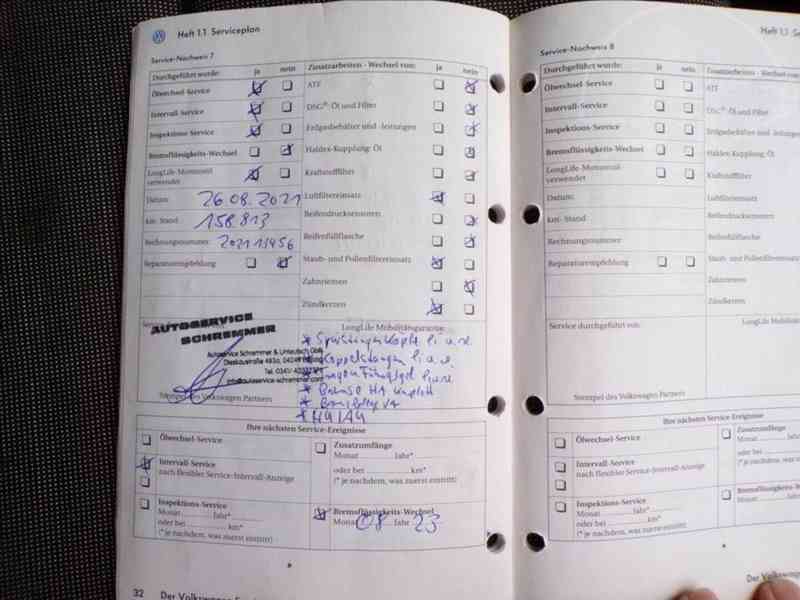 Heft 1.1 Serviceplan
Service-Nachweis 7
Durchgeführt wurde: ja nein
Zusatzarbeiten - Wechsel von: ja nein
Ölwechsel-Service
ATF
Intervall-Service
DSG®-Öl und Filter
Inspektions-Service
Erdgasbehälter und -leitungen
Bremsflüssigkeits-Wechsel
Haldex-Kupplung: Öl
LongLife-Motorenöl
verwendet
Kraftstofffilter
Datum: 26.08.2021
Luftfiltereinsatz
km-Stand: 158.813
Reifendrucksensoren
Rechnungsnummer: 202113456
Reifenfüllflasche
Reparaturempfehlung
Staub- und Pollenfiltereinsatz
Zahnriemen
Zündkerzen
LongLife Mobilitätsgarantie
AUTOSERVICE
SCHREMMER
Autoservice Schremmer & Unteutsch GbR
Dieskaustraße 483a, 04249 Leipzig
info@autoservice-schremmer.com
Stempel des Volkswagen Partners
* Spurstangenköpfe li. u. re.
* Koppelstangen li. u. re.
* Bremse HA komplett
* Bremsbeläge VA
* HU/AU
Ihre nächsten Service-Ereignisse
Ölwechsel-Service
Zusatzumfänge
Monat Jahr*
Intervall-Service
nach flexibler Service-Intervall-Anzeige
oder bei km*
(* je nachdem, was zuerst eintritt)
Inspektions-Service
Monat Jahr*
oder bei km*
(* je nachdem, was zuerst eintritt)
Bremsflüssigkeits-Wechsel
Monat 08 Jahr 23
32 Der Volkswagen
Heft 1.1
Service-Nachweis 8
Durchgeführt wurde: ja nein
Zusatzarbeiten - Wechsel von:
Ölwechsel-Service
ATF
Intervall-Service
DSG®-Öl und Filter
Inspektions-Service
Erdgasbehälter und -leitungen
Bremsflüssigkeits-Wechsel
Haldex-Kupplung: Öl
LongLife-Motorenöl
verwendet
Kraftstofffilter
Datum:
Luftfiltereinsatz
km-Stand
Reifendrucksensoren
Rechnungsnummer
Reifenfüllflasche
Reparaturempfehlung
Staub- und Pollenfiltereinsatz
Zahnriemen
Zündkerzen
Service durchgeführt von:
LongLife
Stempel des Volkswagen Partners
Ihre nächsten Service-Ereignisse
Ölwechsel-Service
Zusatzumfänge
Monat
Intervall-Service
nach flexibler Service-Intervall-Anzeige
oder bei
(* je nachdem,
Inspektions-Service
Monat Jahr*
oder bei km*
(* je nachdem, was zuerst eintritt)
Bremsflüssigkeits
Monat
Der Volkswagen